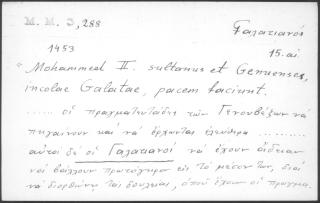 M. M. 3, 288
Γαλατιανοί
1453
15. αι.
Mohammed II. sultanus et Genuenses,
incolae Galatae, pacem faciunt.
...... οι πραγματευτάδες των Γενουβέζων να
πηγαίνουν και να έρχονται ελεύθερα .........
αυτοί δε οι Γαλατιανοί να έχουν άδειαν
να βάλλουν πρωτόγηρον εις το μέσον των, διά
να διορθώνη ταις δουλείαις, οπού έχουν οι πραγμα.